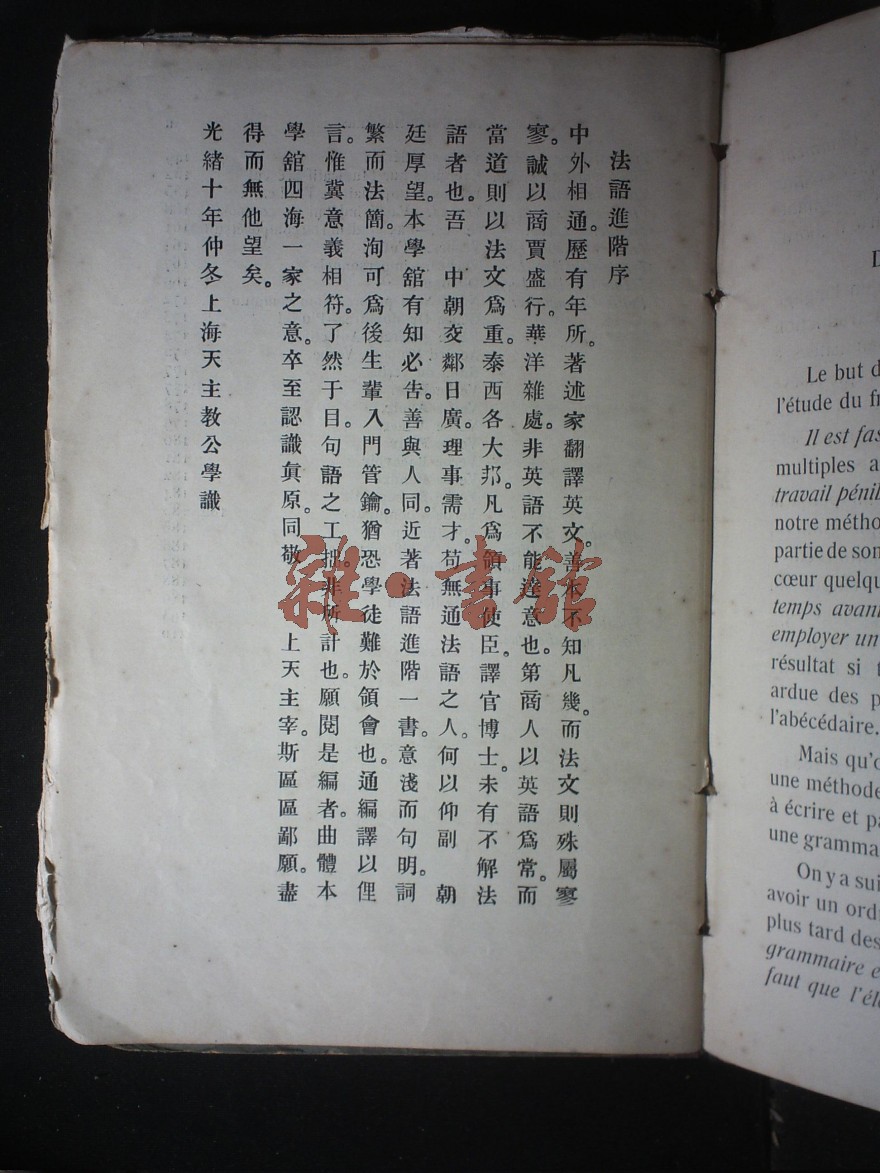 法語進階序
中外相通。歷有年所。著述家翻譯英文。善本不知凡幾。而法文則殊屬寥
寥。誠以商賈盛行。華洋雜處。非英語不能達意也。第商人以英語爲常。而
當道則以法文爲重。泰西各大邦。凡爲領事使臣。譯官博士。未有不解法
語者也。吾 中朝交鄰日廣。理事需才。苟無通法語之人。何以仰副 朝
廷厚望。本學舘有知必吿。善與人同。近著法語進階一書。意淺而句明。詞
繁而法簡。洵可爲後生輩入門管鑰。猶恐學徒難於領會也。通編譯以俚
言。惟冀意義相符。了然于目。句語之工拙。非所計也。願閱是編者。曲體本
學舘四海一家之意。卒至認識眞原。同敬 上天主宰。斯區區鄙願。盡
得而無他望矣。
光緒十年仲冬上海天主教公學識
雜·書館
D
Le but d
l'étude du f
Il est fas
multiples a
travail pénib
notre métho
partie de son
cœur quelqu
temps avan
employer un
résultat si
ardue des p
l'abécédaire.
Mais qu'
une méthode
à écrire et pa
une gramma
On y a sui
avoir un ord
plus tard des
grammaire e
faut que l'él